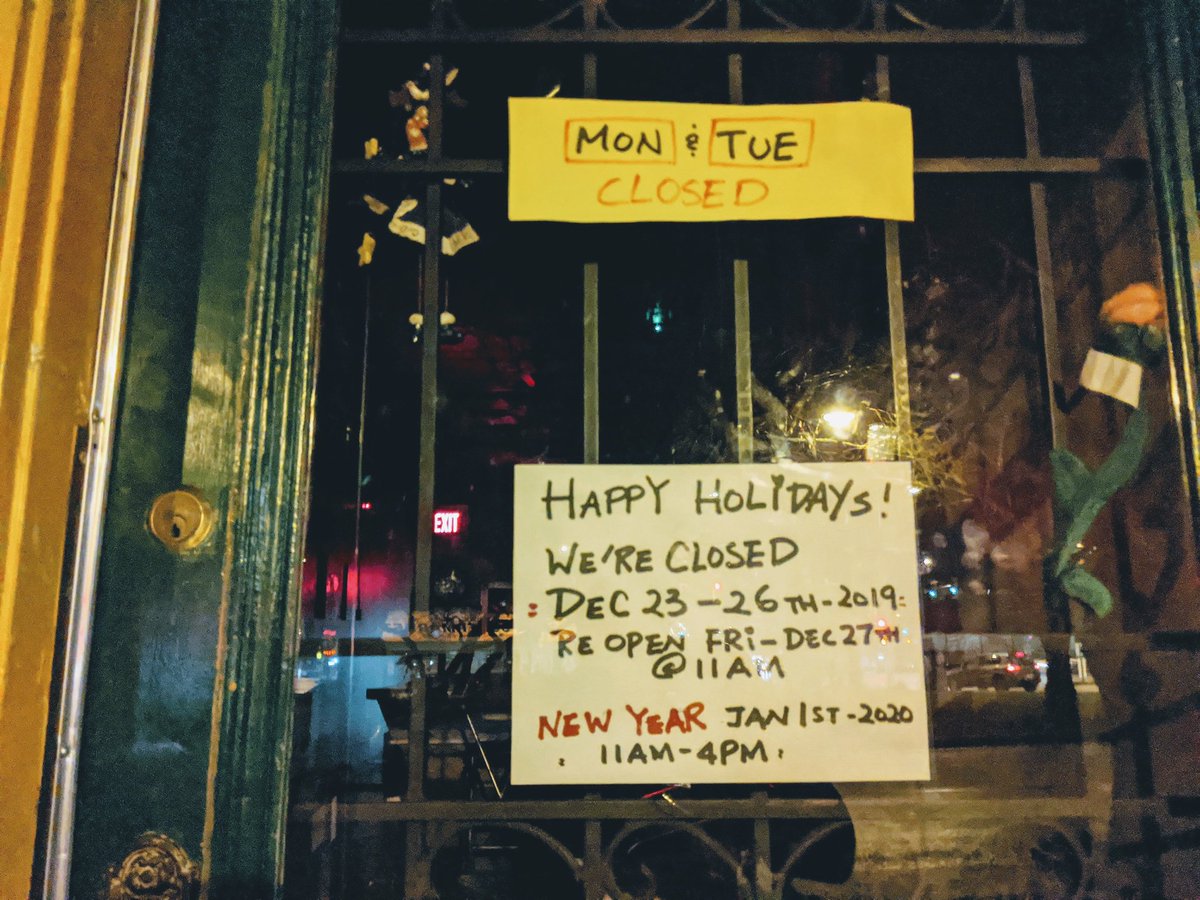 MON & TUE
CLOSED
HAPPY HOLiDAYs!
WE'RE CLOSED
DEC 23 - 26TH - 2019
RE OPEN FRi - DEC 27TH
@ 11AM
NEW YEAR JAN 1ST - 2020
11AM - 4PM.
EXIT